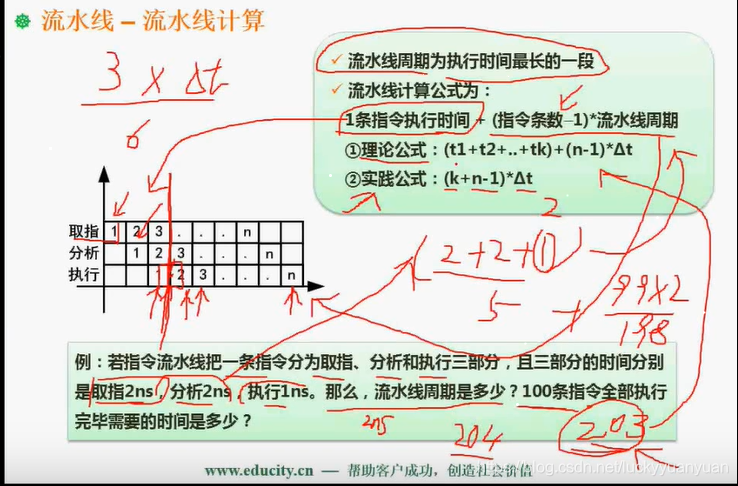 流水线 – 流水线计算
3 x Δt
6
✓ 流水线周期为执行时间最长的一段
✓ 流水线计算公式为：
1条指令执行时间 + (指令条数-1)*流水线周期
①理论公式：(t1+t2+..+tk)+(n-1)*Δt
②实践公式：(k+n-1)*Δt
2
取指 1 2 3 . . . n
分析 1 2 3 . . . n
执行 1 2 3 . . . n
(2+2+1)
5 + 99x2
198
例：若指令流水线把一条指令分为取指、分析和执行三部分，且三部分的时间分别
是取指2ns，分析2ns，执行1ns。那么，流水线周期是多少？100条指令全部执行
完毕需要的时间是多少？
2ns
204
203
www.educity.cn — 帮助客户成功，创造社会价值
blog.csdn.net/luckyyuanyuan